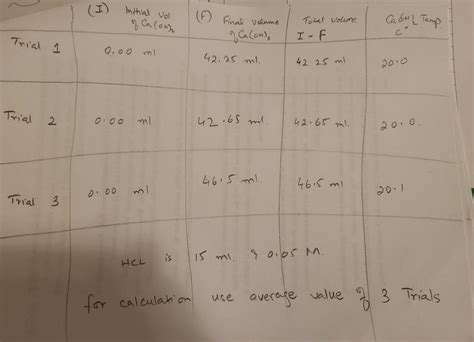 (I) Initial Vol of Ca(OH)2
(F) Final volume of Ca(OH)2
Total Volume I - F
Ca(OH)2 Temp C°
Trial 1 0.00 ml 42.25 ml. 42.25 ml. 20.0
Trial 2 0.00 ml 42.65 ml. 42.65 ml. 20.0.
Trial 3 0.00 ml 46.5 ml. 46.5 ml 20.1
HCL is 15 ml. & 0.05 M.
for calculation use average value of 3 Trials